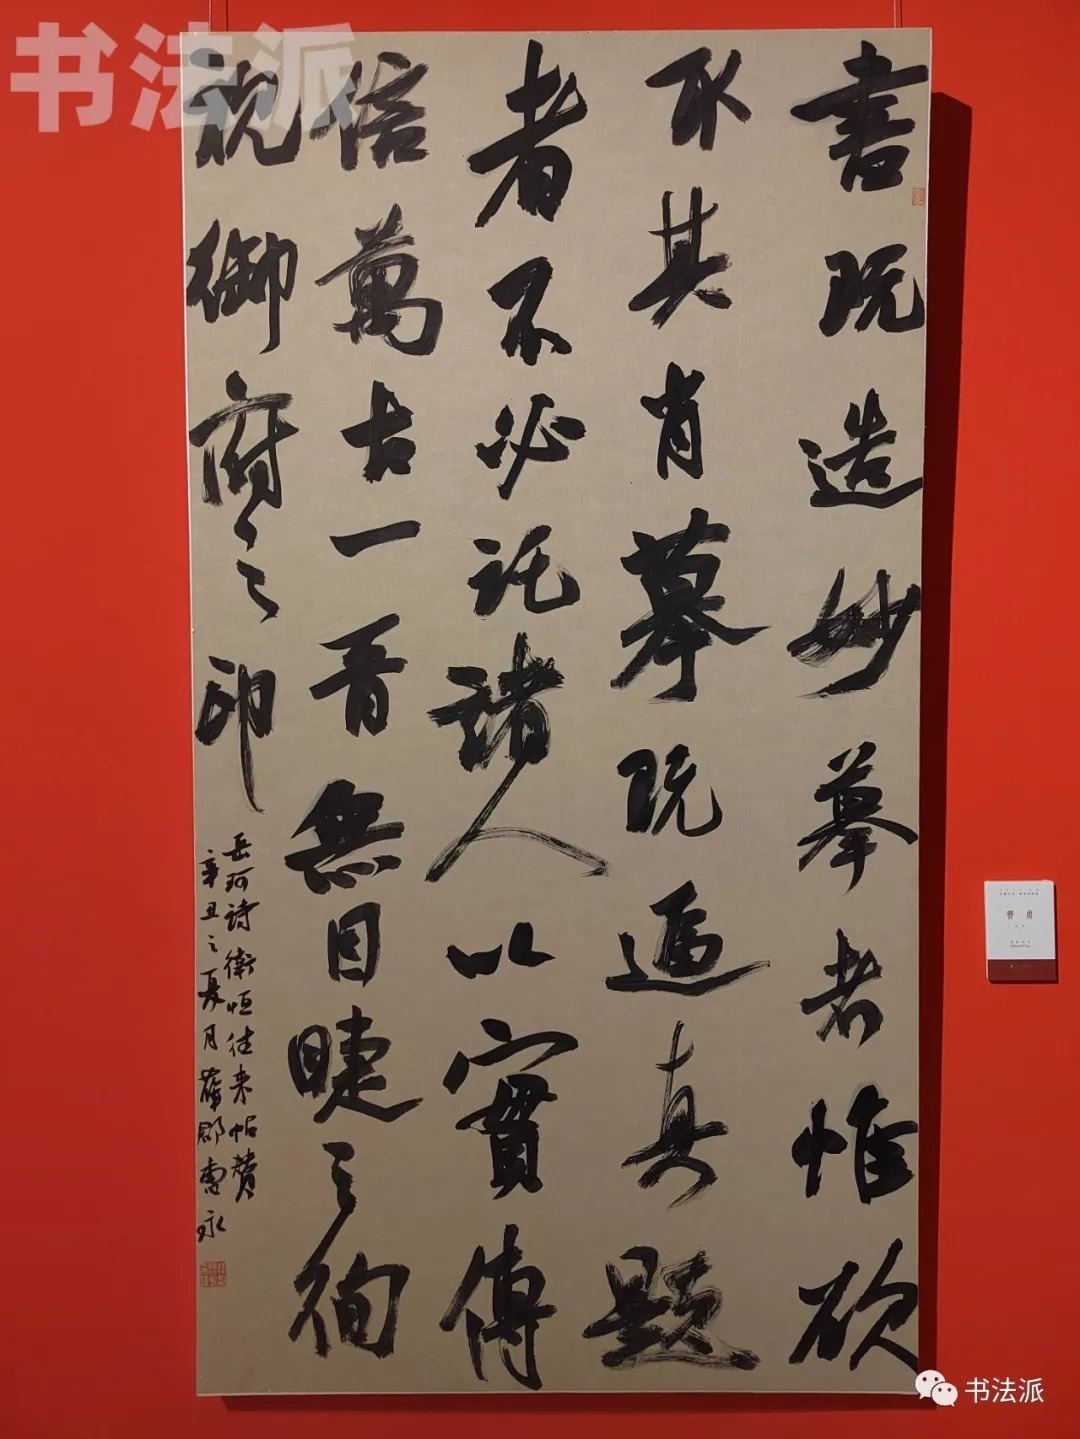 書既造妙摹者惟欲
不其肖摹既逼真題
者不必託諸人以實傳
信萬古一晋無目睫之徇
視御府之印
岳珂詩衛恒往来帖贊
辛丑之夏月郡曹永
曹勇
书法派
书法派